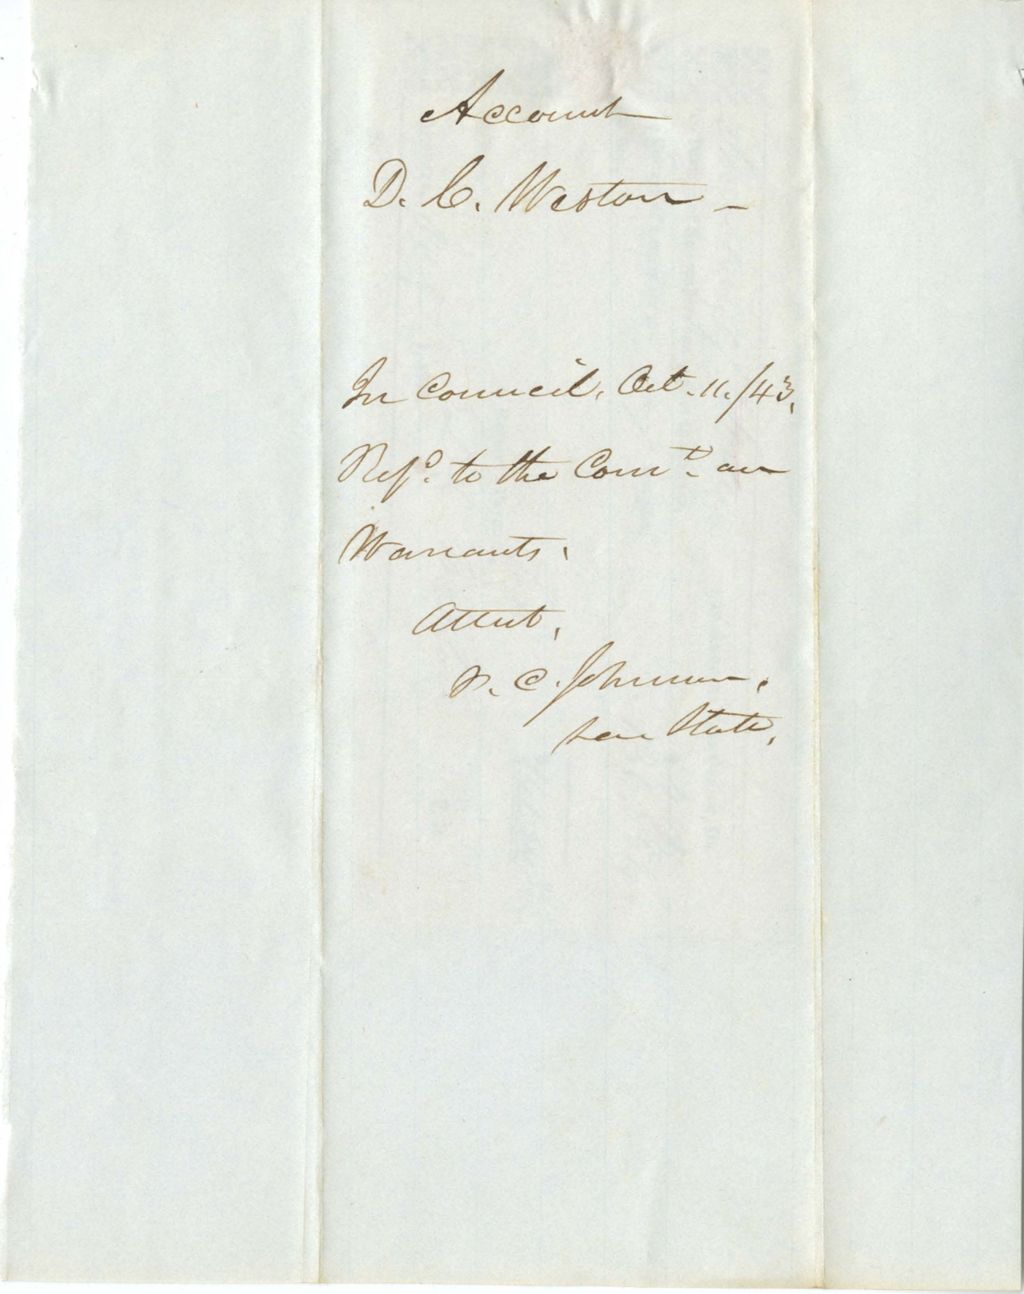 Account
D. C. Weston –
In Council, Oct. 11. /43.
Refd. to the Comt. on
Warrants.
Attest,
P. C. Johnson,
Sec State.